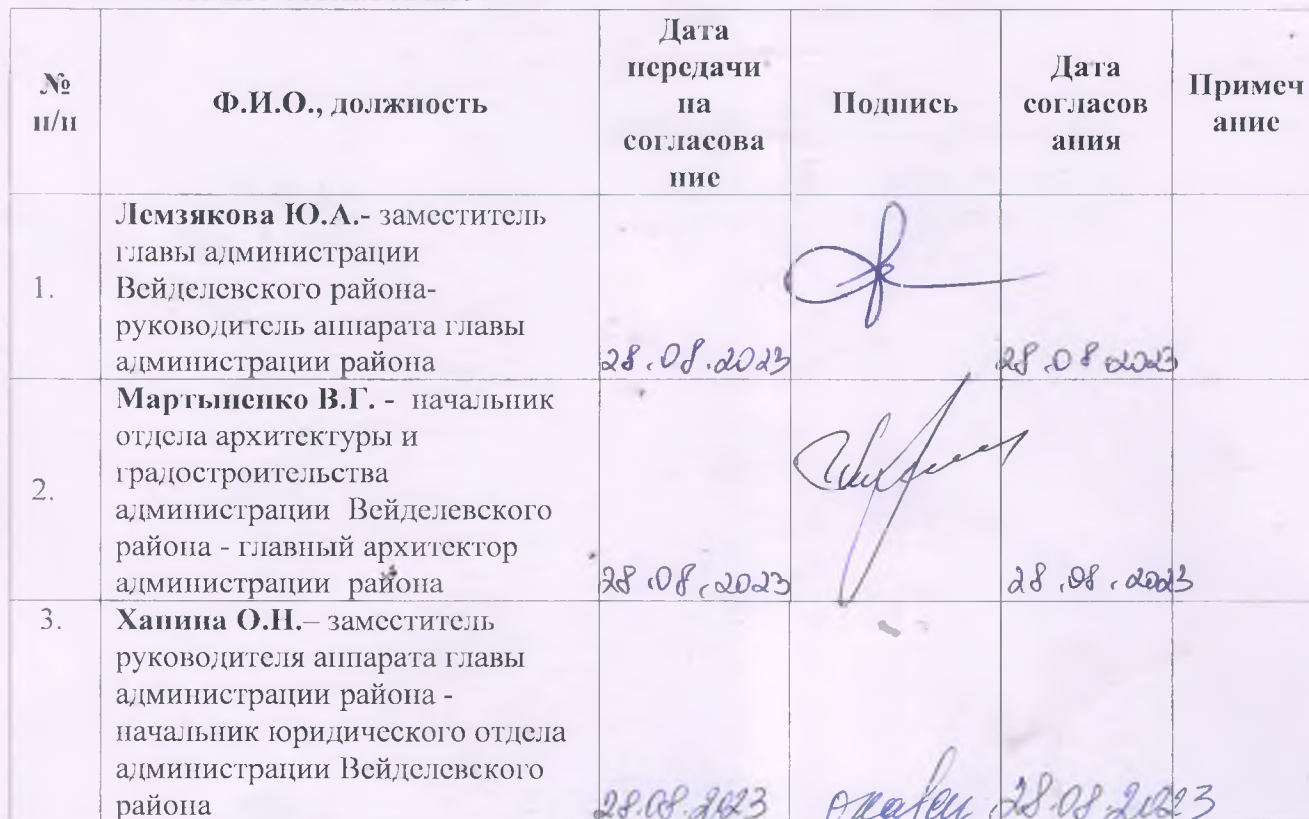 №
п/п
Ф.И.О., должность
Дата
передачи
на
согласова
ние
Подпись
Дата
согласов
ания
Примеч
ание
1.
Лемзякова Ю.А.- заместитель
главы администрации
Вейделевского района-
руководитель аппарата главы
администрации района
28.08.2023
28.08.2023
2.
Мартыненко В.Г. - начальник
отдела архитектуры и
градостроительства
администрации Вейделевского
района - главный архитектор
администрации района
28.08.2023
28.08.2023
3.
Ханина О.Н.– заместитель
руководителя аппарата главы
администрации района -
начальник юридического отдела
администрации Вейделевского
района
28.08.2023
28.08.2023